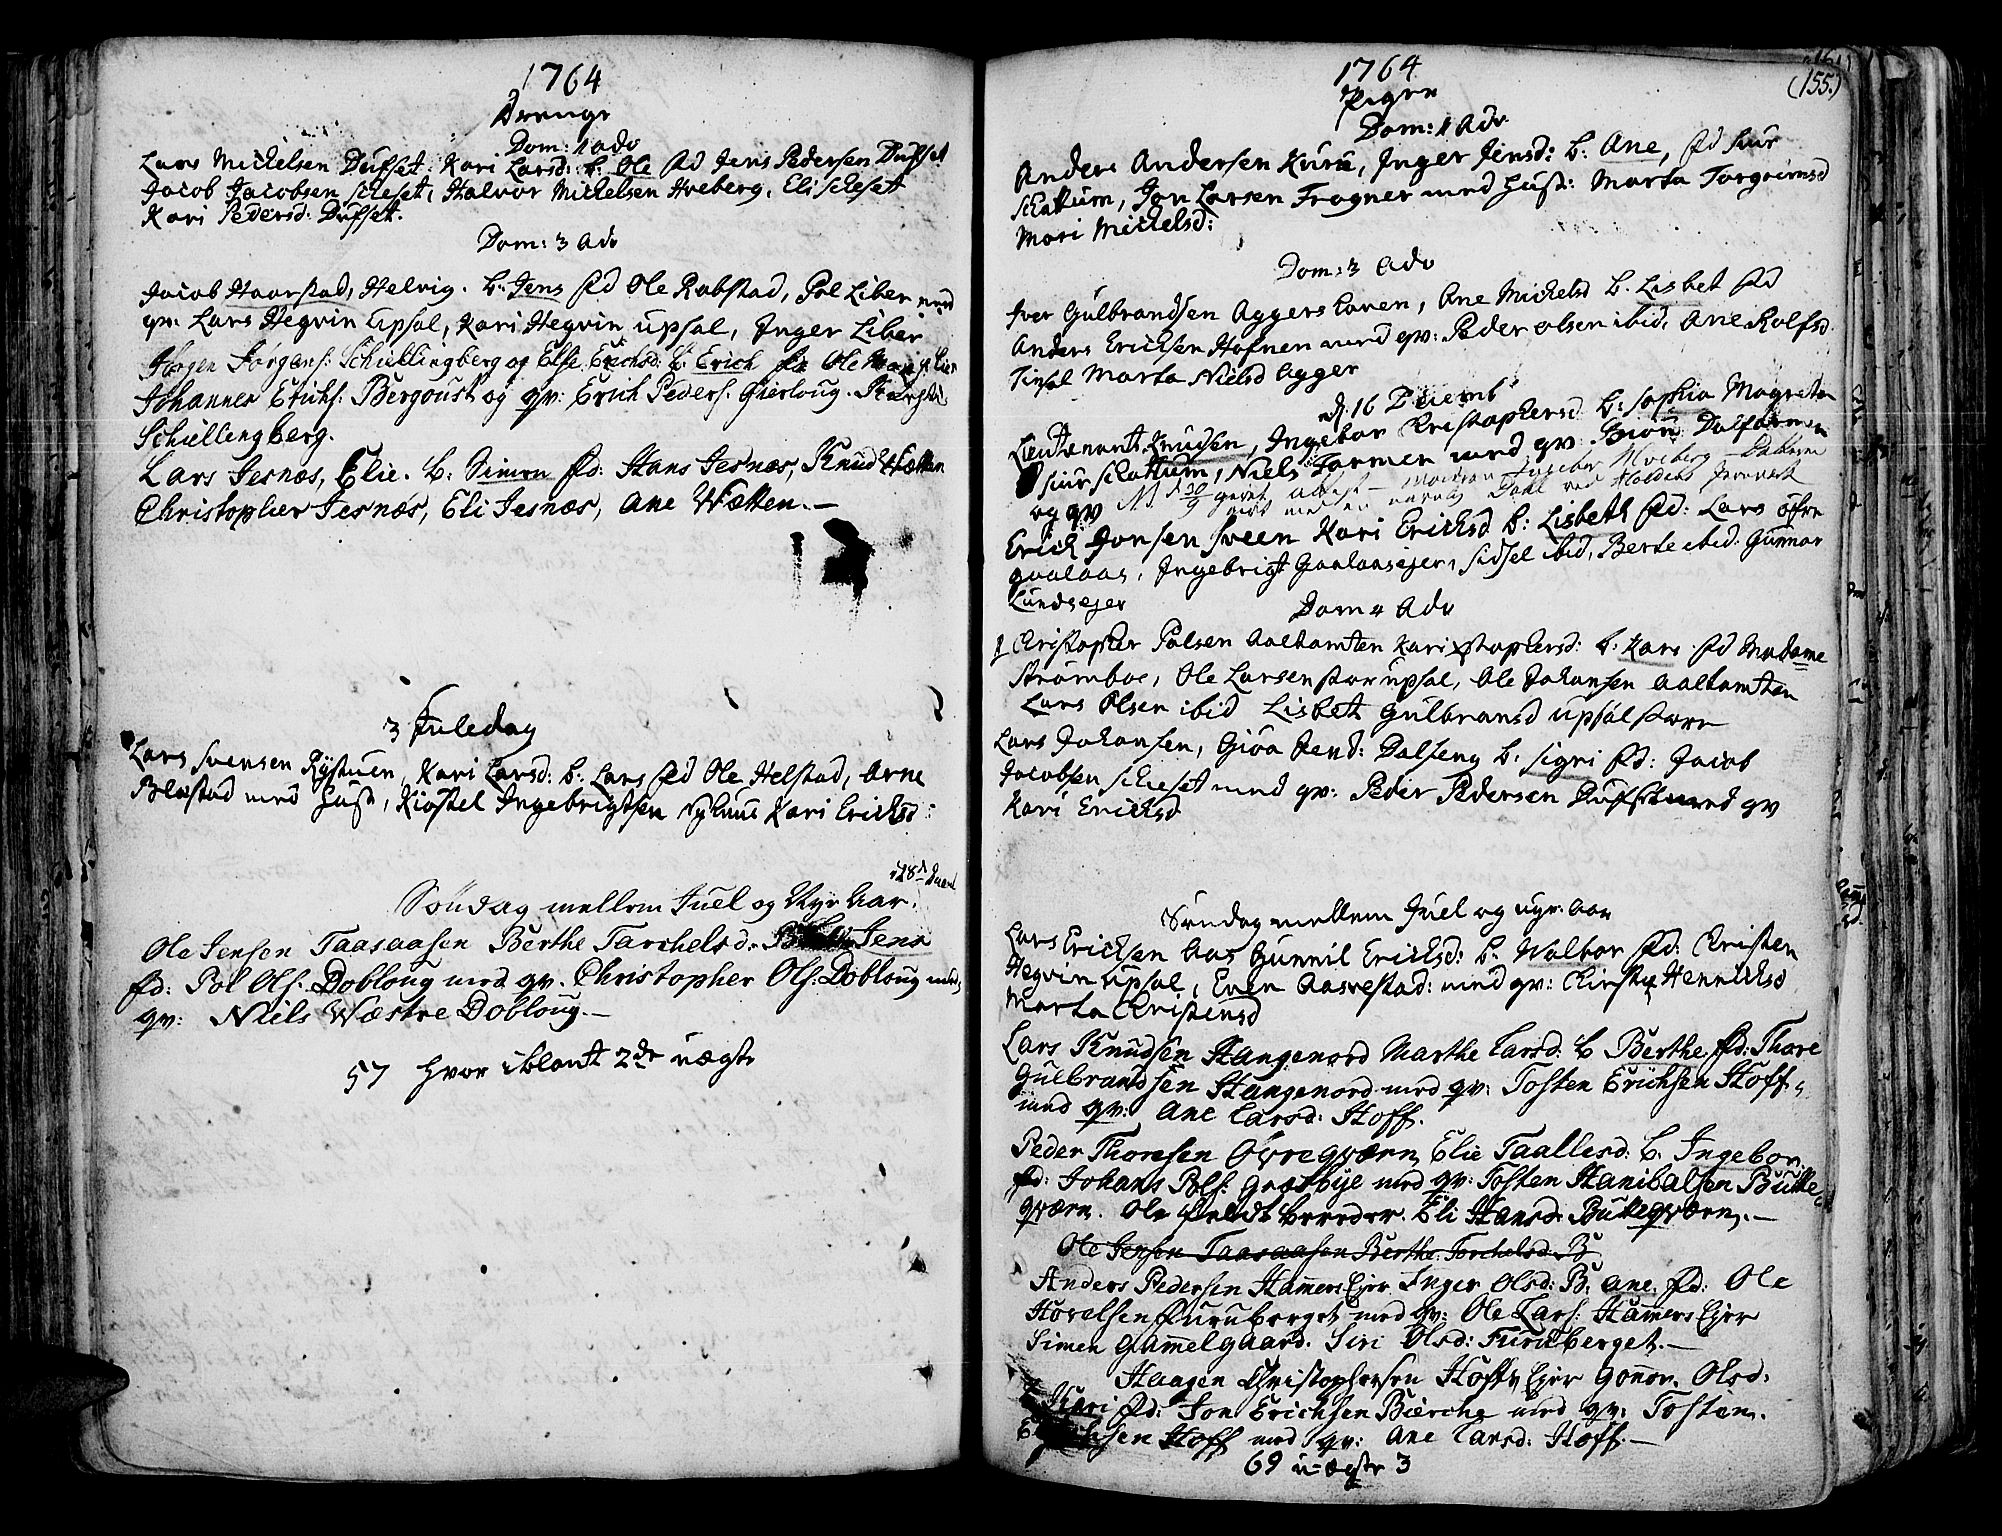 1764
Drenge
Dom: 1 adv
Lars Mickelsen Dufset. Kari Larsd: b: Ole fd Jens Pedersen Dufset
Jacob Jacobsen Scheset, Halvor Mickelsen Hveberg, Eli Scheset
Kari Pedersd: Dufset.
Dom: 3 Adv
Jacob Haarstad, Helvig. b: Jens fd Ole Rabstad, Pol Liber med
qv: Lars Hegvin Upsal, Kari Hegvin upsal, Inger Liber
Jørgen Jørgens: Schiellingberg og Else Erichsd: b: Erich fd Ole
Johannes Erichs: Bergoust og qv: Erich Peders: Gierloug.
Schiellingberg.
Lars Jesnæs, Elie. b: Simen fd: Hans Jesnæs, Knud Wætten
Christopher Jesnæs, Eli Jesnæs, Ane Wætten.—
3 Juledag
Lars Svensen Rÿstuen, Kari Larsd: b: Lars fd Ole Helstad, Arne
Blæstad med Hust, Kiøstel Ingebrigtsen Kari Ericksd:
Søndag mellem Juel og Nye Aar.
Ole Jensen Taasaasen Berthe Tarchelsd: Jens
fd: Pol Ols: Dobloug med qv. Christopher Ols: Dobloug med
qv: Niels Wæstre Dobloug.—
57 hvor iblant 2de uægte
1764
(155.)
Piger
Dom: 1 Adv
Anders Andersen Kuru, Inger Jensd: b: Ane, fd Siur
Schattum, Jon Larsen Frogner med Hust: Marta Torgeirsd
Mari Mickelsd:
Dom: 3 Adv
Iver Gulbrandsen Aggerslaven, Ane Mickelsd b. Lisbet fd
Anders Ericksen Hofnen med qv: Peder olsen ibid. Ane Rolfsd
Marta Nielsd Agger
d. 16 Decemb
Lieutenant Knudsen, Ingebor Christophersd b: Sophia Magreta
Siur Schattum, Niels Farmen med qv:
og qv
Erick Jonsen Sveen Kari Ericksd b: Lisbeth fd: Lars øfre
gaalaas, Ingebrigt Gaalaasejer, Sidsel ibid, Berte ibid. Gunnor
Lundsejer
Dom 4 Adv
Christopher Palsen Aaltomten Kari Xstophersd: b: Kari fd Madame
Strømboe, Ole Larsen stor upsal, Ole Johansen Aaltomten
Lars Olsen ibid Lisbeth Gulbransd upsal store
Lars Johansen, Giøa Jensd: Dalseng b: Sigri fd: Jacob
Jacobsen Scheset med qv: Peder Pedersen Dufset med qv
Kari Ericksd
Søndag mellem Juel og nye aar
Lars Ericksen Aas Gunnil Ericksd: b: Walbor fd: Christen
Hegvin upsal, Even Aasvestad: med qv: Kirsti Hennicksd
Marta Christensd
Lars Knudsen Stangenord Marthe Larsd: b Berthe. fd: Thore
Gulbrandsen Stangenord med qv: Tosten Erichsen Hoff
med qv: Ane Larsd: Hoff.
Peder Thoresen Øvreqværn, Elie Taallesd: b. Ingebor.
fd: Johans Pols: Græsbye med qv: Tosten Hanibalsen Bütte
qværn. Ole Eli Hansd: Bütteqværn.—
Ole Jensen Taasaasen Berthe Torchelsd: B
Anders Pedersen Hamers Ejer Inger Olsd: B. Ane. fd: Ole
Hovelsen Furuberget med qv: Ole Lars: Hamers Ejer
Simen Gamelgaard. Siri Olsd: Furuberget.—
Haagen Christophersen Hoffs Ejer Gonor Olsd:
Kari fd: Jon Erichsen Biercke med qv: Tosten.
Hoff med qv: Ane Larsd: Hoff.—
69 uægte 3